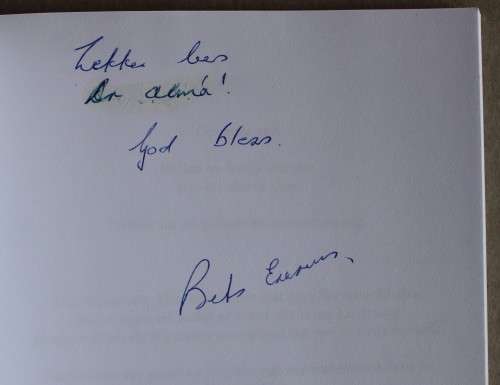 Lekker lees
Dr Alma!
God bless.
Bets